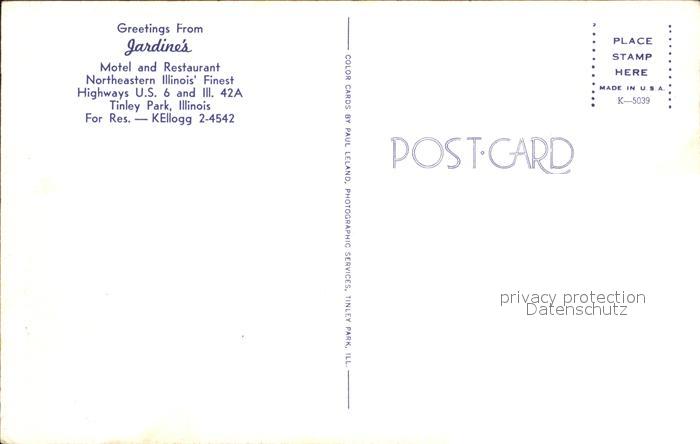 Greetings From
Jardine's
Motel and Restaurant
Northeastern Illinois' Finest
Highways U.S. 6 and Ill. 42A
Tinley Park, Illinois
For Res. — KEllogg 2-4542
COLOR CARDS BY PAUL LELAND, PHOTOGRAPHIC SERVICES, TINLEY PARK, ILL.
PLACE
STAMP
HERE
MADE IN U.S.A.
K—5039
POST·CARD
privacy protection
Datenschutz